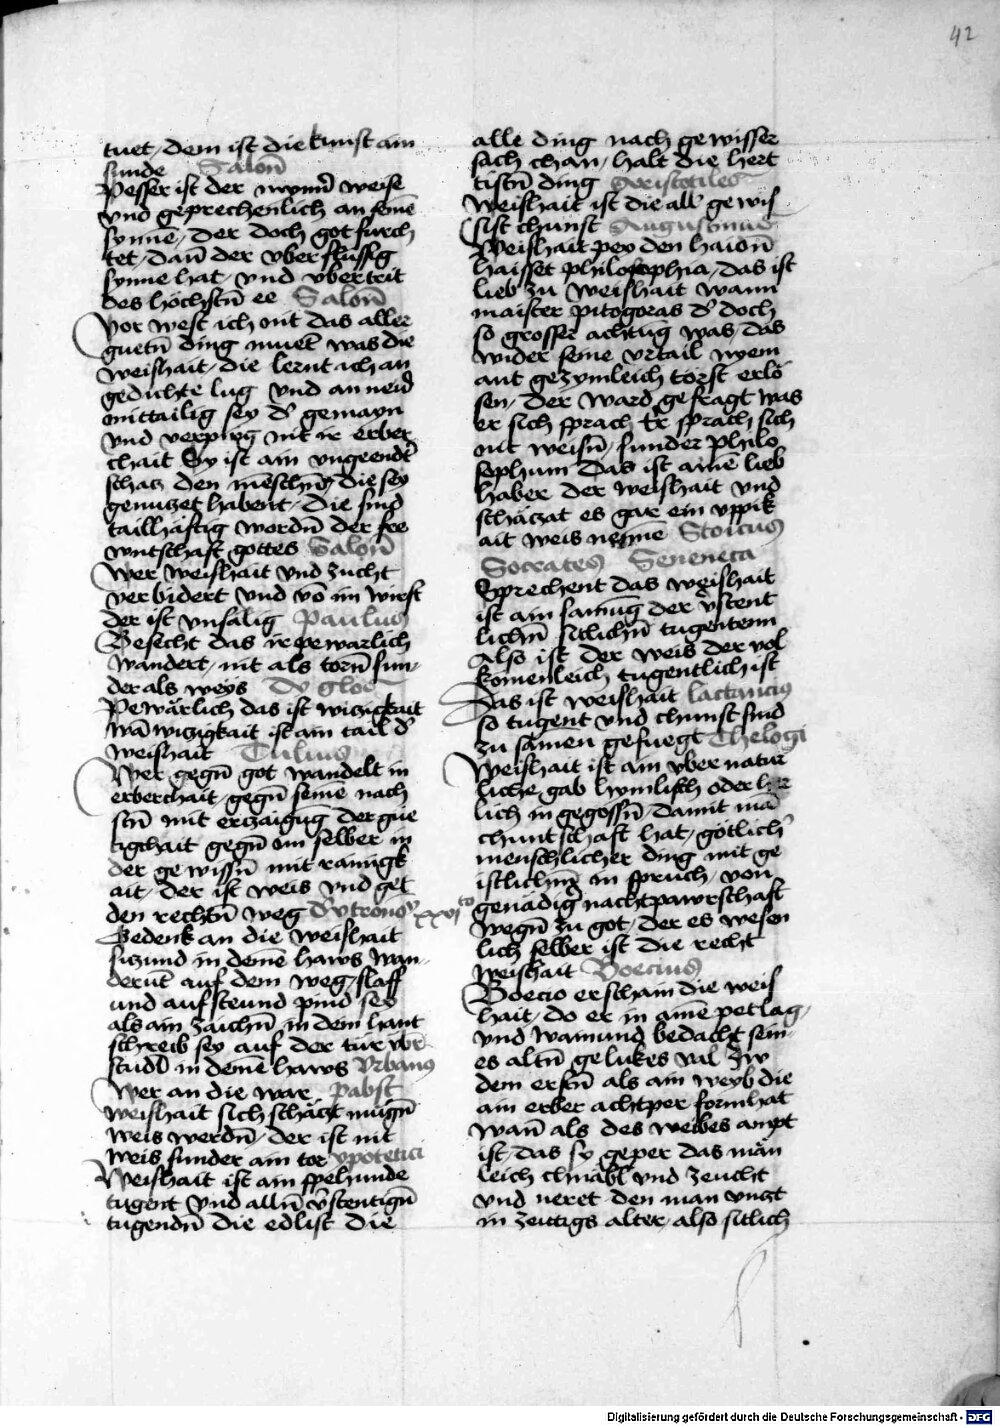 42
tuet, dem ist die kunst ain
sunde Salon̄
Pesser ist der mynn̄ weise
vnd geprechenlich an seinē
synnē, der doch got furch
tet, dan̄ der vberflussig
synne hat vnd vbertrit
des höchstn̄ ee Salon̄
Vor west ich nit das aller
guetn̄ ding muet̄ was die
weishait, die lernt ich an
gedichte lug vnd an neid
mittailig sey d̄ gemayn
vnd verpirg nit ir erber
chait Sy ist ain vngeendt̄
schatz den menschn̄ die sey
genutzet habent, die sind
tailhäftig wordn̄ der fre
wntschaft gottes Salon̄
Wer weishait vnd zucht
verbidert vnd vo im wirft
der ist vnsälig Paulus
Besecht das ir pewarlich
wandert, nit als torn̄ sun-
der als weys Dy glos
Pewärlich das ist witzigkait
wā witzigkait ist ain tail d̄
weishait Tulius
Wer gegn̄ got wandelt in
erberchait, gegn̄ seine nach
stn̄ mit ertzaigūg der gue
tigchait gegn̄ im selber in
der gewissn̄ mit rainigk
ait, der ist weis vnd get
den rechtn̄ weg Dvtronō xxvi to
Gedenk an die weishait
sitzund in deinē haws wan-
derūt auf dem weg, slaff
und aufsteund pind sey
als ain zaichn̄ in dem hant
schreib sey auf der tür vbr̄
studl in deinē haws Vrbanus
Wer an die war pabst
weishait sich schätzt mügn̄
weis werdn̄, der ist nit
weis sunder ain tor ypotetici
Weishait ist ain spehunde
tugent vnd alln̄ v̄stentign̄
tugendn̄ die edlist die
alle ding nach gewisser
sach chan, halt die hert
tistn̄ ding Aristotiles
Weishait ist die all gewis
sist chunst Augustinus
Weishait pey den haidn̄
haisset philosophia, das ist
lieb zu weishait wann
maister pitogoras d̄ doch
so grosser achtūg was, das
wider seine vrtail nyem
ant gezymleich torst erlö
sen, der ward gefragt was
er sich sprach Er sprach sich
nit weisn̄, sunder philo
sophum das ist ainē lieb
haber der weishait vnd
schätzat es gar ein vppik
ait weis nennē Stoicus
Socrates Seneneca
Sprechent das weishait
ist ain samūg der v̄stent
lichn̄ sitlichn̄ tugentenn
Also ist der weis der vol
komenleich tugentlich ist
Das ist weishait lactancius
so tugent vnd chunst sind
zu sämen gefuegt Thelogi
Weishait ist ain vbernatur
liche gab hymlisch oder
lich in gegossn̄, damit mā
chuntschaft hat, götlich̄
menschlicher ding mit ge
istlichm̄ in spruch, von
genädig nachtpawrschaft
wegn̄ zu got, der es wesen
lich selber ist die recht
weishait Boecius
Boecio erschain die weis
hait, do er in ainē petlag,
vnd wainund bedacht sein-
es altn̄ gelukes vil Zw
dem erstn̄ als ain weyb die
ain erber achtper form hat
wan̄ als des weibes ampt
ist, das sy geper das män
leich chnäbl vnd zeucht
vnd neret den man vntzt
in zeitigs alter, also sitlich
Digitalisierung gefördert durch die Deutsche Forschungsgemeinschaft - DFG